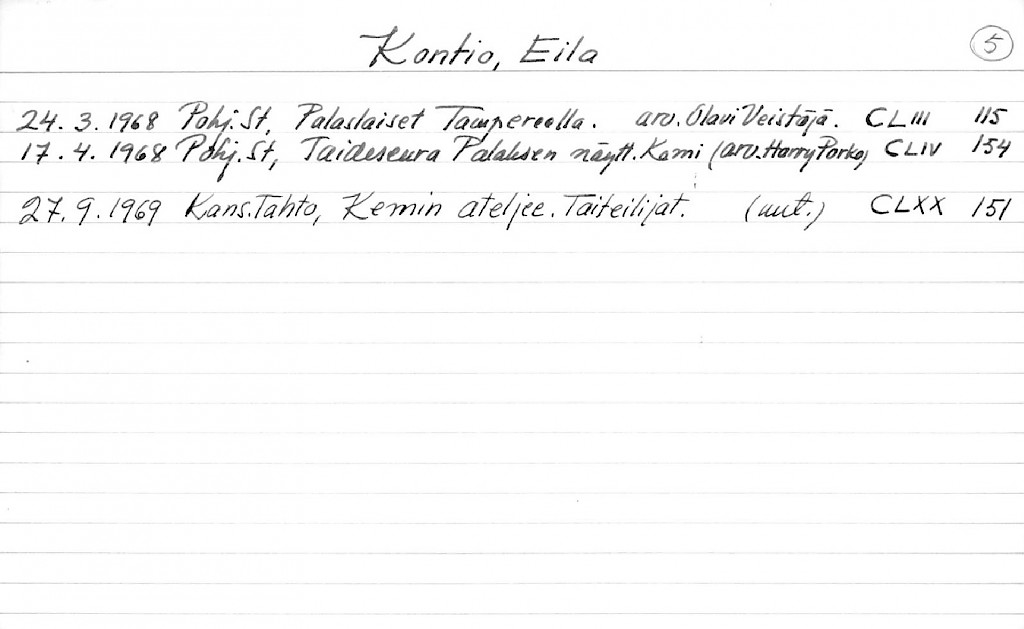 Kontio, Eila 5
24. 3. 1968 Pohj. St, Palaslaiset Tampereella. arv. Olavi Veistäjä. CLIII 115
17. 4. 1968 Pohj. St, Taideseura Palaksen näytt. Kemi (arv. Harry Porko) CLIV 154
27. 9. 1969 Kans. Tahto, Kemin ateljee. Taiteilijat. (uut.) CLXX 151